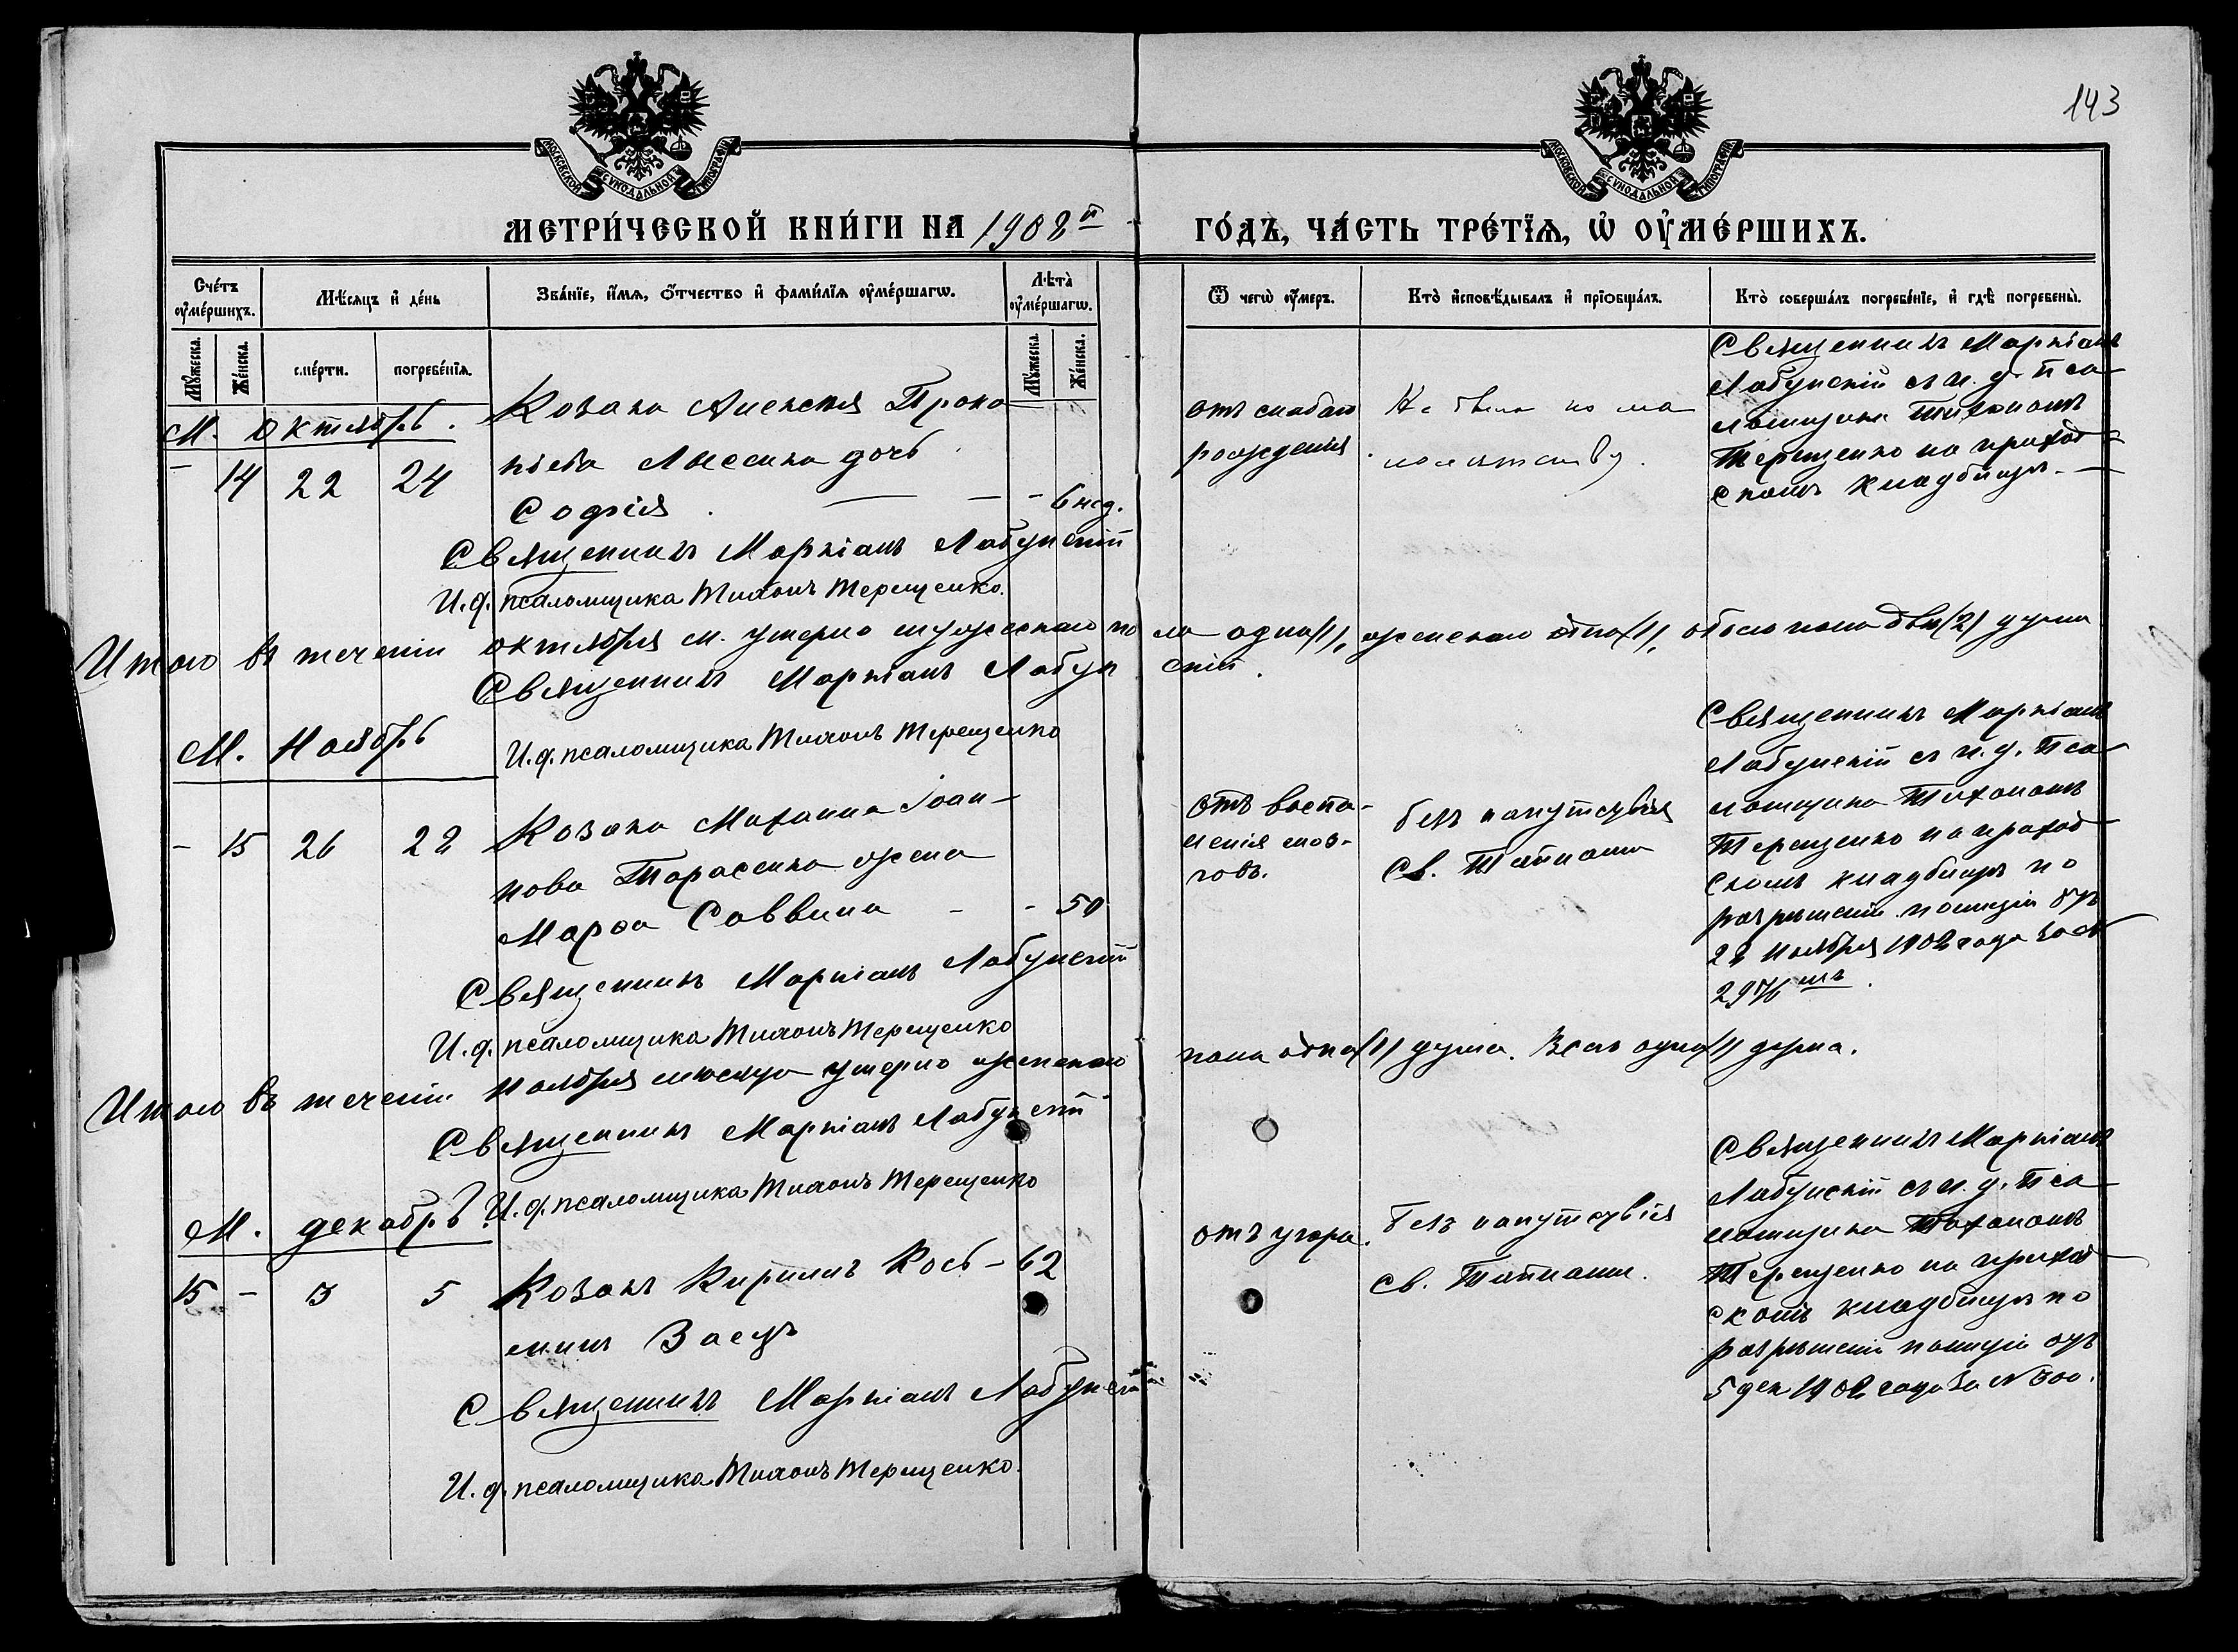 143
МОСКОВСКОЙ СѴНОДАЛЬНОЙ ТИПОГРАФІИ
МОСКОВСКОЙ СѴНОДАЛЬНОЙ ТИПОГРАФІИ
МЕТРИ́ЧЕСКОЙ КНИ́ГИ НА 1902й
ГО́ДЪ, ЧА́СТЬ ТРЕ́ТЇѦ, Ѡ҆ ОУ҆МЕ́РШИХЪ.
Сче́тъ оу҆ме́ршихъ.
Мѣ́сѧцъ и҆ де́нь
Зва́нїе, и҆́мѧ, ѻ҆́тчество и҆ фами́лїѧ оу҆ме́ршагѡ.
Лѣта̀ оу҆ме́ршагѡ.
Ѿ чегѡ̀ оу҆́меръ.
Кто̀ и҆сповѣ́дывалъ и҆ прїѡбща́лъ.
Кто̀ соверша́лъ погребе́нїе, и҆ гдѣ̀ погребены̀.
Мꙋ́жеска.
Же́нска.
сме́рти.
погребе́нїѧ.
Мꙋ́жеска.
Же́нска.
М. Октябрь.
- 14 22 24
Козака Алексѣя Проко
піева Лысенка дочь
Софія - - 6 нед.
отъ слабаго
рожденія.
Не была по ма
лолѣтству.
Священникъ Маркіанъ
Лабунскій съ и. д. пса
ломщика Тихономъ
Терещенко на приход
скомъ кладбищѣ.
Священникъ Маркіанъ Лабунскій
И. д. псаломщика Тихонъ Терещенко.
Итого въ теченіи октября м. умерло мужескаго по ла одна (1), женскаго одна (1), обоего пола двѣ (2) души
Священникъ Маркіанъ Лабун скій.
И. д. псаломщика Тихонъ Терещенко
М. Ноябрь
- 15 26 28
Козака Михаила Іоан-
нова Тарасенка жена
Марѳа Саввина - - 50
отъ воспа-
ленія моз-
говъ.
безъ напутствія
Св. Тайнами
Священникъ Маркіанъ
Лабунскій съ и. д. Пса
ломщика Тихономъ
Терещенко на приход
скомъ кладбищѣ по
разрѣшенію полиціи отъ
28 Ноября 1902 года за №
2976мъ.
Священникъ Маркіанъ Лабунскій
И. д. псаломщика Тихонъ Терещенко
Итого въ теченіи Ноября мѣсяца умерло женскаго пола одна (1) душа. Всего одна (1) душа.
Священникъ Маркіанъ Лабунскій
И. д. псаломщика Тихонъ Терещенко
М. декабрь.
15 - 3 5
Козакъ Кириллъ Кось- 62
минъ Заецъ
отъ угара.
Безъ напутствія
Св. Тайнами.
Священникъ Маркіанъ
Лабунскій съ и. д. Пса
ломщика Тихономъ
Терещенко на приход
скомъ кладбищѣ по
разрѣшенію полиціи отъ
5 дек 1902 года за № 300.
Священникъ Маркіанъ Лабунскій
И. д. псаломщика Тихонъ Терещенко.